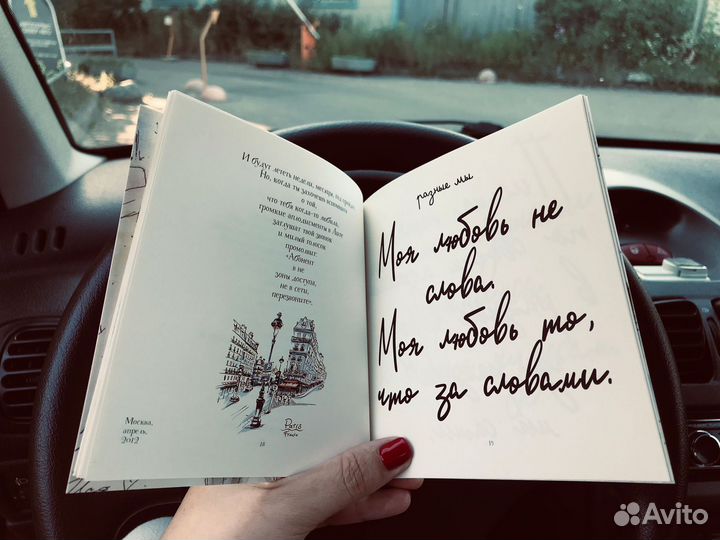 И будут лететь недели, месяцы, год пройдет.
Но, когда ты захочешь вспомнить
о той,
что тебя когда-то любила,
громкие аплодисменты в Лите
заглушат твой звонок
и милый голосок
промолвит:
«Абонент
в не
зоны доступа,
не в сети,
перезвоните».
Paris
France
Москва,
апрель,
2012
18
разные мы
Моя любовь не
слова.
Моя любовь то,
что за словами.
19
Avito